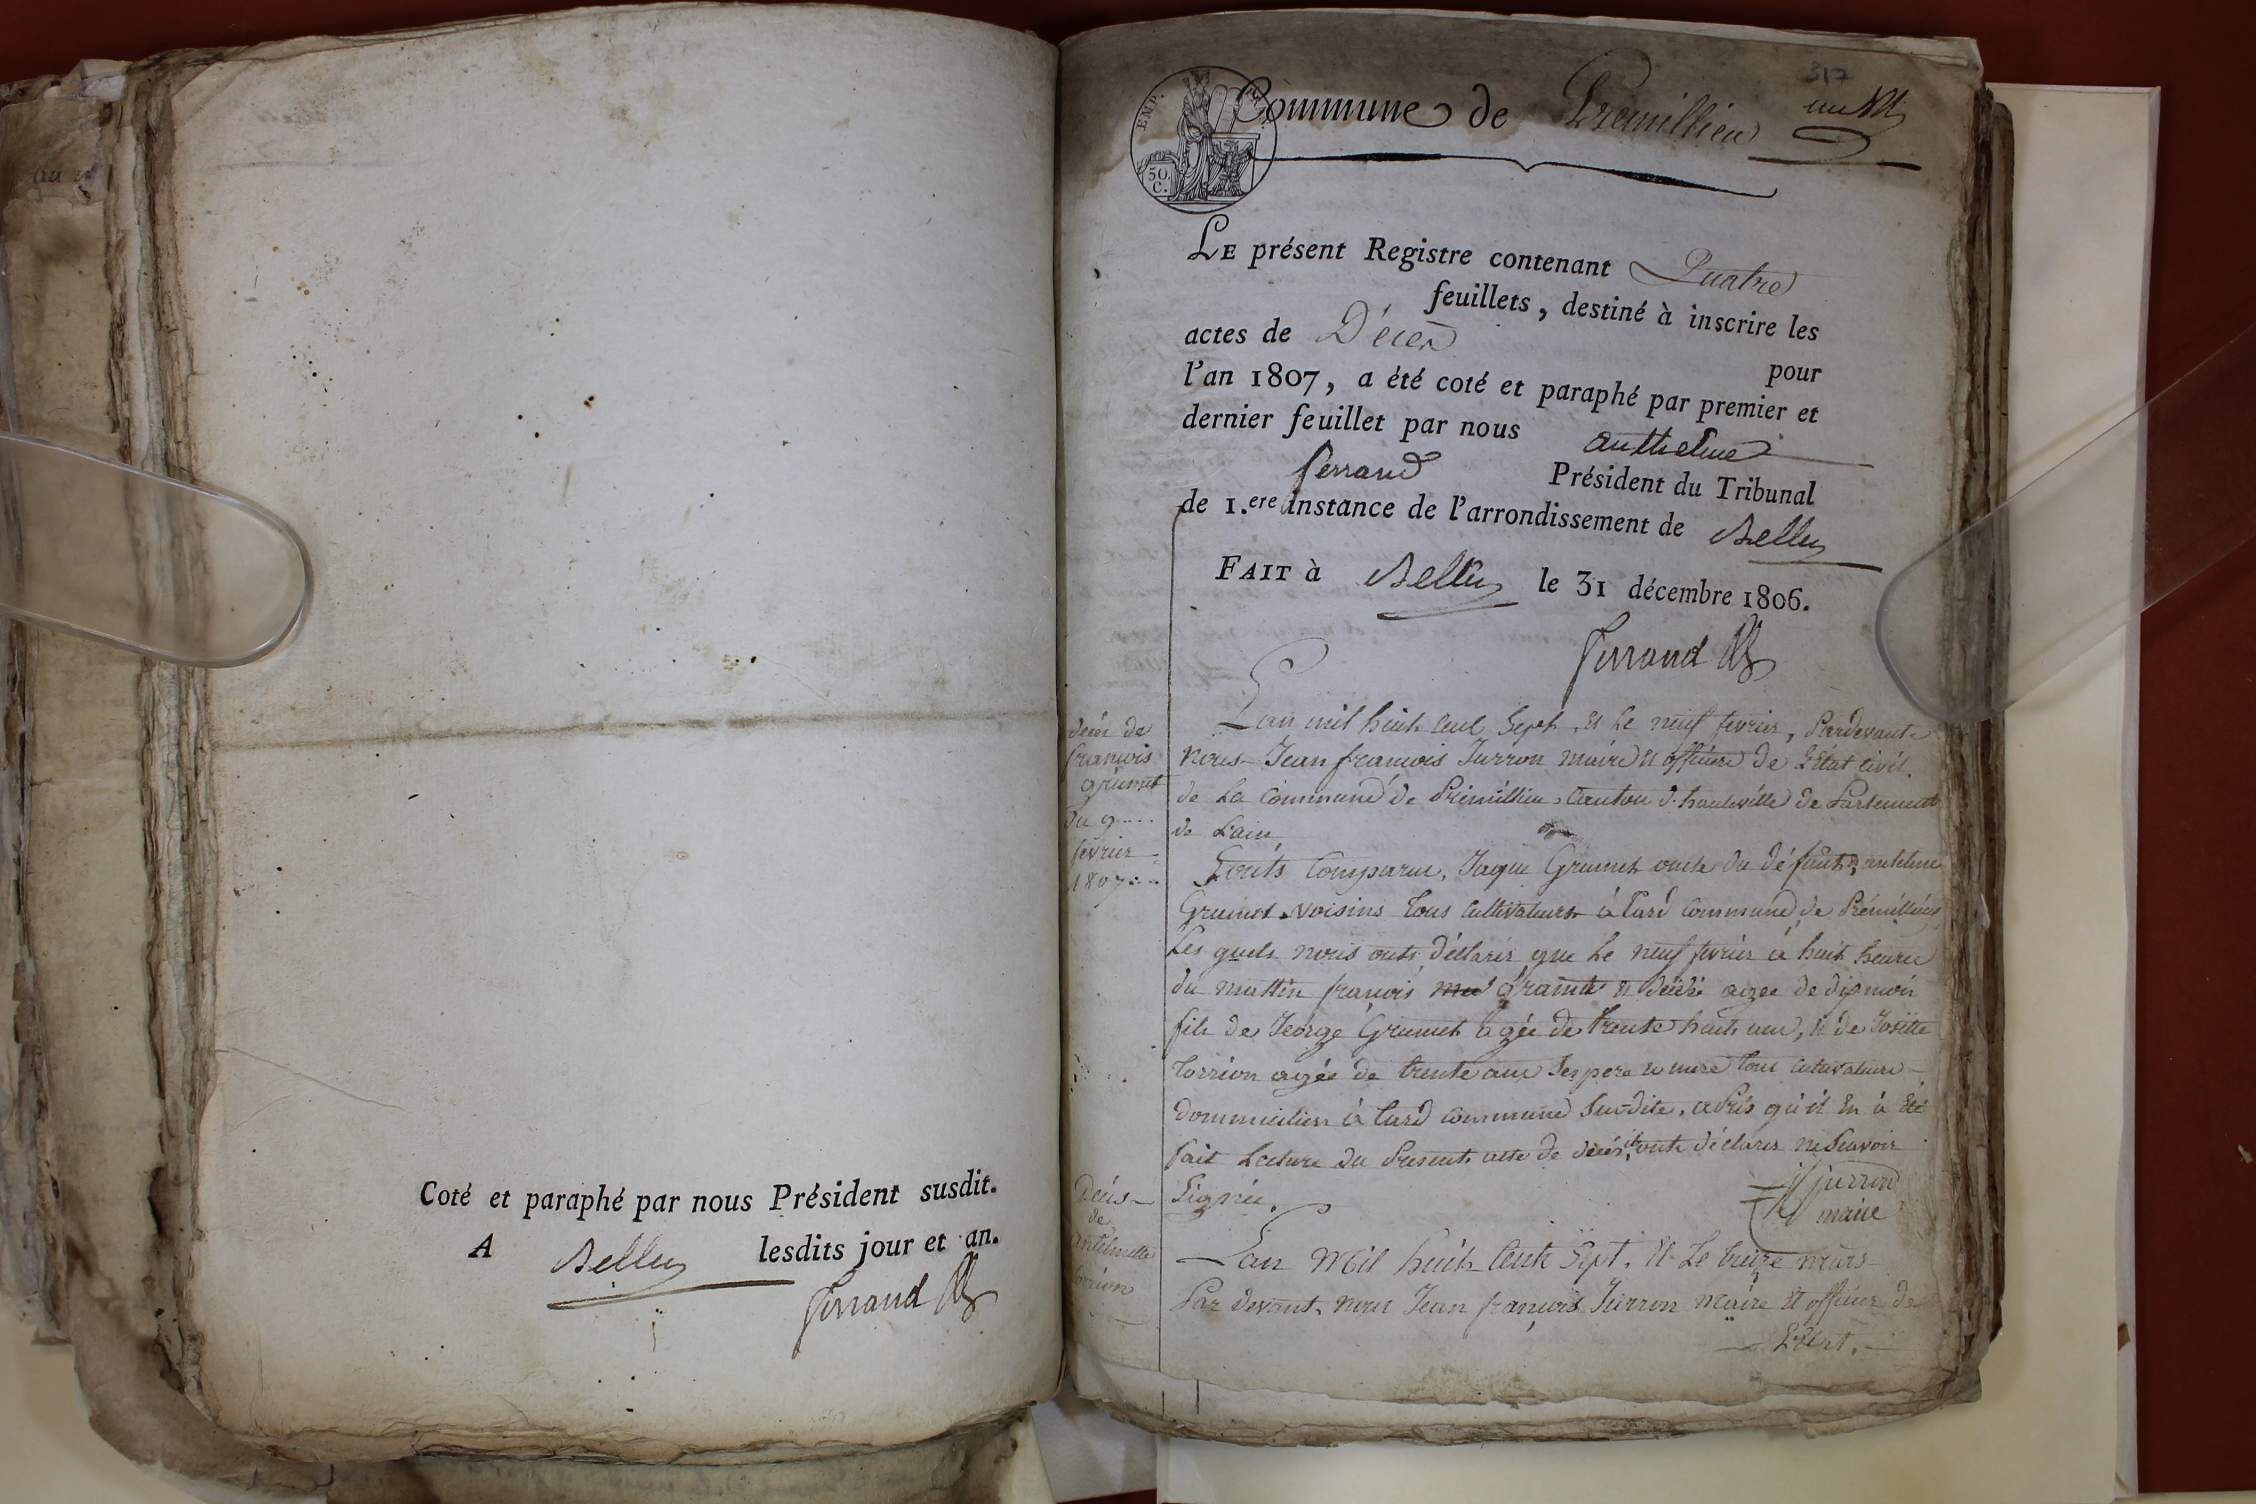 Coté et paraphé par nous Président susdit.
A Belley lesdits jour et an.
Ferrand
317
EMP.
50.
C.
Commune de Premillieu
un
LE présent Registre contenant Quatre
feuillets, destiné à inscrire les
actes de Décès
pour
l'an 1807, a été coté et paraphé par premier et
dernier feuillet par nous anthelme
ferrand Président du Tribunal
de 1.ere instance de l'arrondissement de Belley
FAIT à Belley le 31 décembre 1806.
Ferrand
décès de
françois
grumet
du 9
fevrier
1807
L'an mil huit cent sept, et le neuf fevrier, Pardevant
nous Jean francois Jurron maire et officier de l'Etat civil.
de La commune de Prémillieu, canton d'hauteville departement
de L'ain
Sonts Comparu, Jaque Grumet oncle du défunt, antelme
Grumet voisins tous cultivateurs à Tard commune de Prémillieu
Les quels nous onts déclarés que le neuf fevrier à huit heures
du mattin françois grumet et décédé agee de dix mois
fils de George Grumet agée de trente huits ans, et de Josette
Torrion agée de trente ans ses pere et mere tous cultivateurs
dommicilies à tard commune Sus-dite, aprés qu'il En à Eté
fait Lecture du Present acte de décés, ils onts déclarés ne Scavoir
Signée.
Jurron
maire
Décés
de
antelmette
torrion
L'an Mil huit Cent Sept, et Le treize mars
Par devant nous Jean françois Jurron maire et officier de
L'Etat.